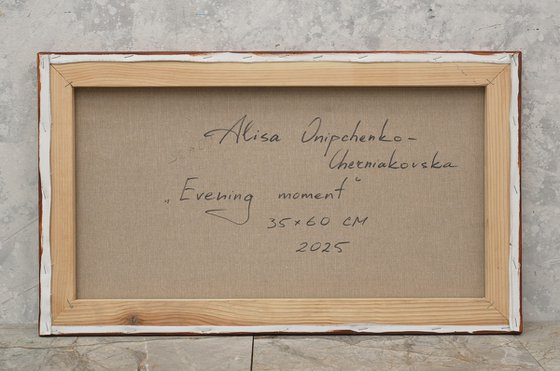 Alisa Onipchenko-
Cherniakovska
„Evening moment"
35×60 см
2025